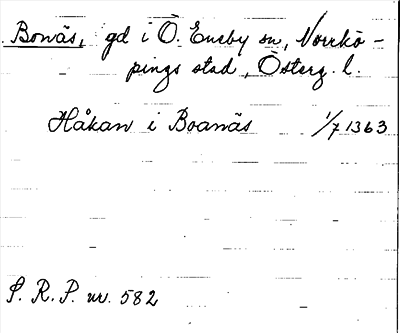 Bonäs, gd i Ö. Eneby sn, Norrkö-
pings stad, Österg. l.
Håkan i Boanäs 1/7 1363
S. R. P. nr. 582